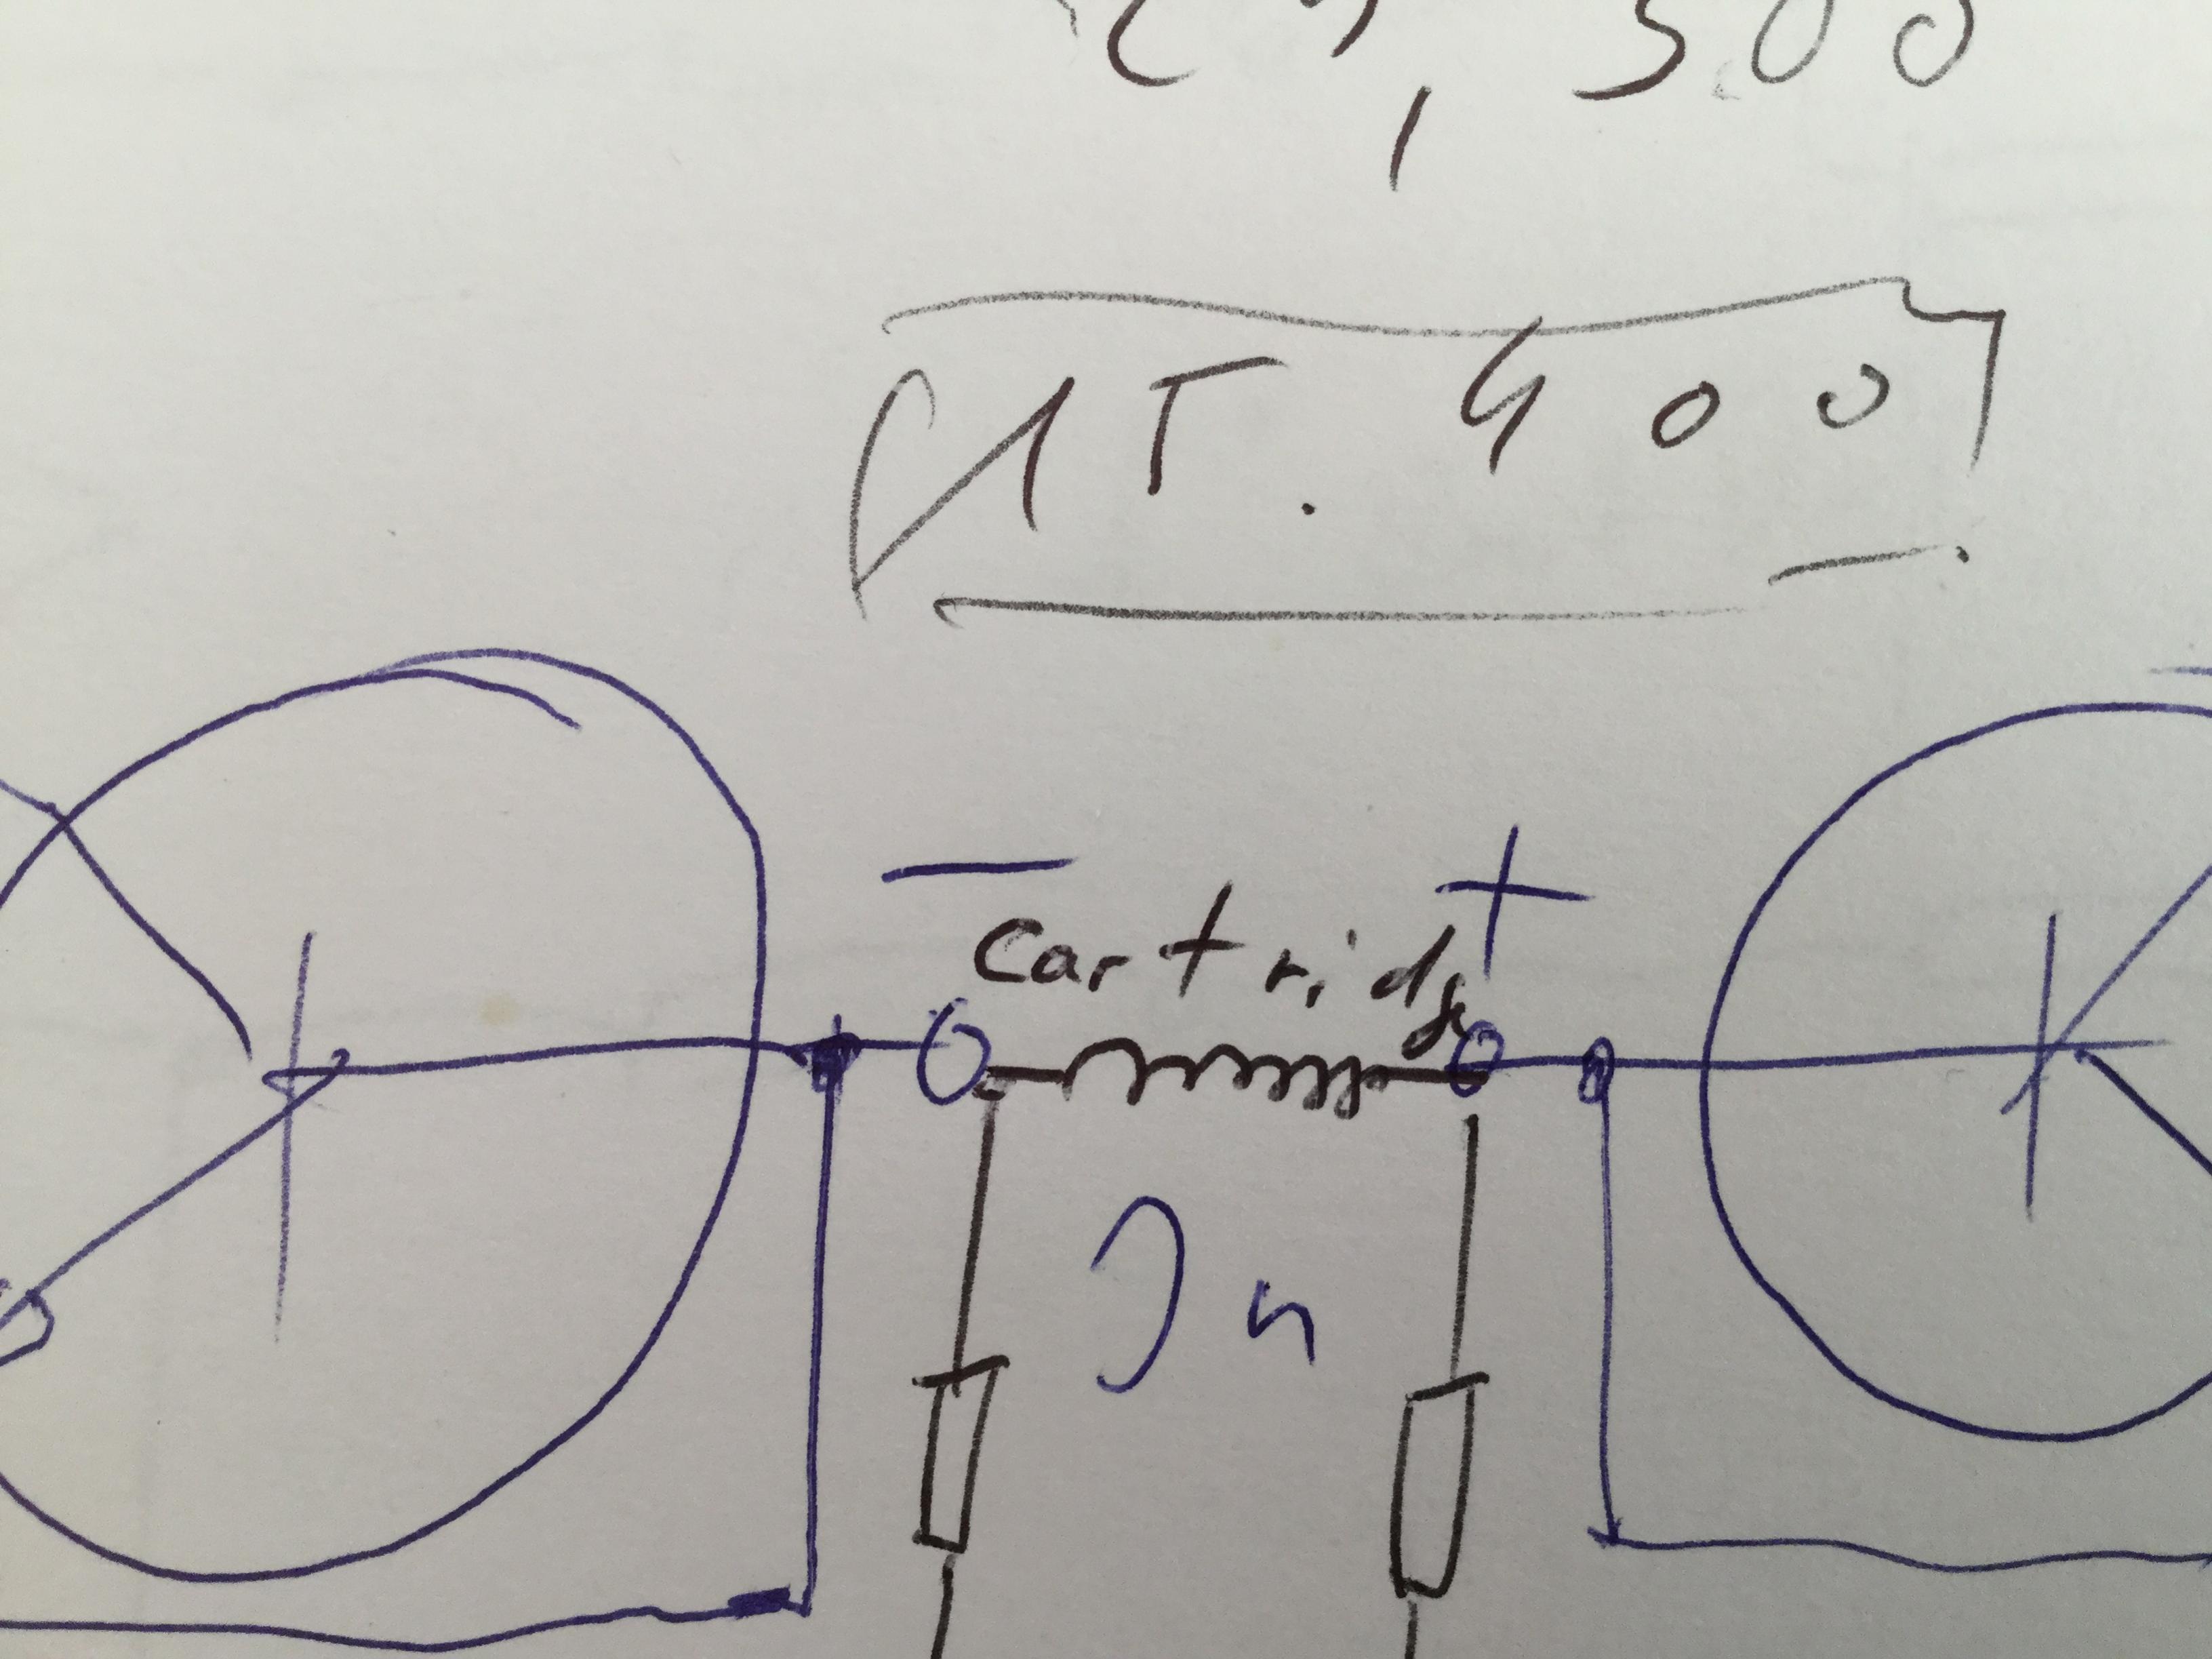 , 500
1T. 400
− +
Cartridge
In